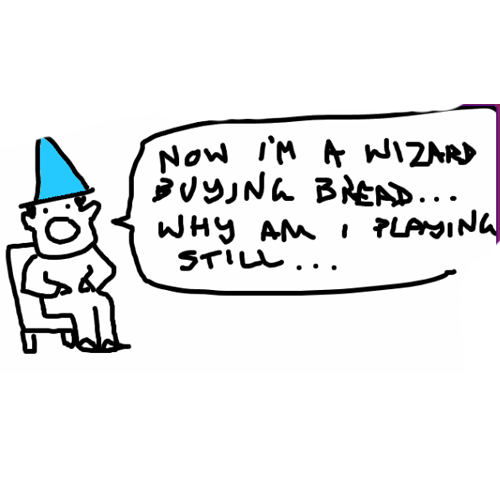 NOW I'M A WIZARD
BUYING BREAD...
WHY AM I PLAYING
STILL...